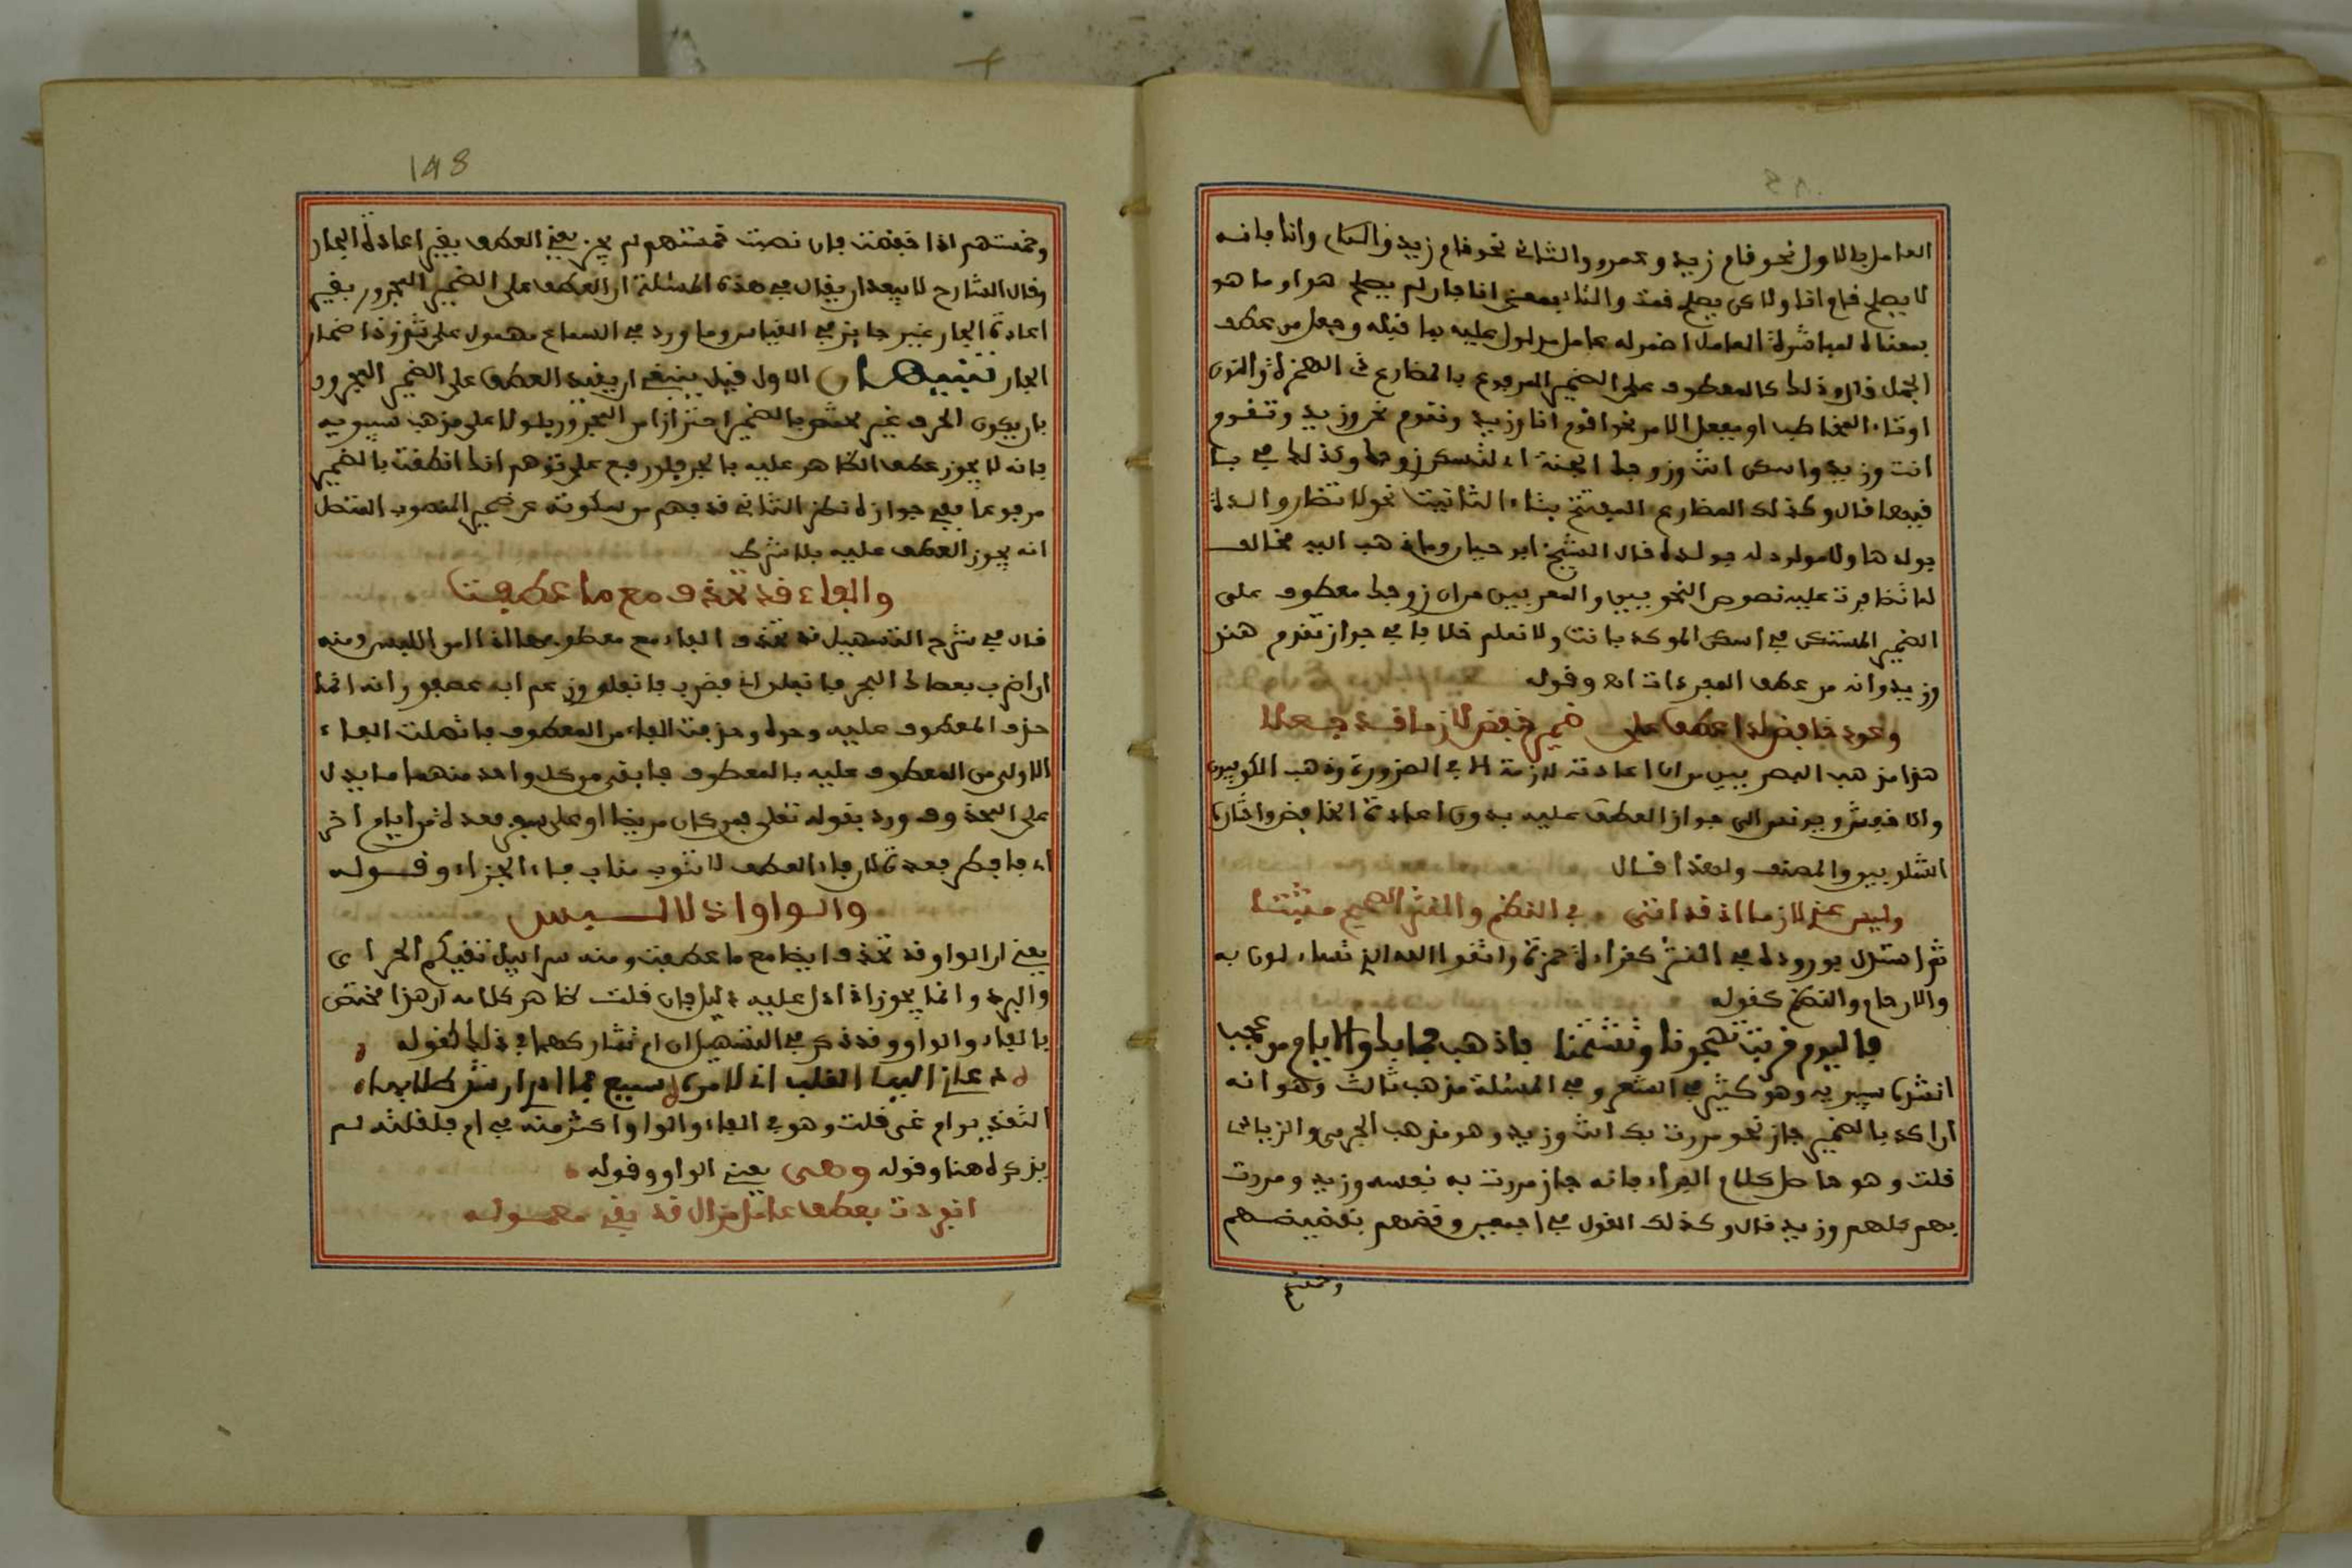 العامل بالاول نحو قام زيد وعمرو والثاني نحو قام زيد وانا فانه
لا يصلح قام انا ولاكن يصلح قمت والتاء بمعنى انا فان لم يصلح هو او ما هو
بمعناه لمباشرة العامل اضمر له عامل مدلول عليه بما قبله وجعل من عطف
الجمل قال وذلك كالمعطوف على الضمير المرفوع بالمضارع ذي الهمزة والنون
او تاء المخاطب او بفعل الامر نحو اقوم انا وزيد ونقوم نحن وزيد وتقوم
انت وزيد واسكن انت وزوجك الجنة اي لتسكن زوجك وكذلك في با
قيها قال وكذلك المضارع المفتتح بتاء التانيث نحو لا تضار والدة
بولدها ولا مولود له بولده قال الشيخ ابو حيان وما ذهب اليه مخالف
لما تضافرت عليه نصوص النحويين والمعربين من ان زوجك معطوف على
الضمير المستكن في اسكن الموكد بانت ولا نعلم خلافا في جواز تقوم هند
وزيد وانه من عطف المفردات اه وقوله
وعود خافض لدى عطف على ضمير خفض لازما قد جعلا
هذا مذهب البصريين من ان اعادته لازمة الا في الضرورة وذهب الكوفيون
والاخفش ويونس الى جواز العطف عليه بدون اعادة الخافض واختاره
الشلوبين والمصنف ولهذا قال
وليس عندي لازما اذ قد اتى في النظم والنثر الصحيح مثبتا
ثم استدل بوروده في النثر كقراءة حمزة واتقوا الله الذي تساءلون به
والارحام والنظم كقوله
فاليوم قربت تهجونا وتشتمنا فاذهب فما بك والايام من عجب
انشده سيبويه وهو كثير في الشعر وفي المسئلة مذهب ثالث وهو انه
ان اكد بالضمير جاز نحو مررت بك انت وزيد وهو مذهب الجرمي والزيادي
قلت وهو حاصل كلام الفراء فانه جاز مررت به نفسه وزيد ومررت
بهم كلهم وزيد قال وكذلك القول في اجمعين وقضهم بقضيضهم
وخمستهم
148
وخمستهم اذا خفضت فان نصبت خمستهم لم يجز يعني العطف بغير اعادة الجار
وقال الشارح لا يبعد ان يقال في هذه المسئلة ان العطف على الضمير المجرور بغير
اعادة الجار غير جايز في القياس وما ورد في السماع محمول على شذوذ اضمار
الجار تنبيهان الاول قيل ينبغي ان يقيد العطف على الضمير المجرور
بان يكون الحرف غير مختص بالضمير احترازا من المجرور بلولا على مذهب سيبويه
فانه لا يجوز عطف الظاهر عليه بالجر فلو رفع على توهم انك انطقت بالضمير
مرفوعا ففي جوازه نظر الثاني قد يفهم من سكوته عن ضمير المنصوب المتصل
انه يجوز العطف عليه بلا شرط
والفاء قد تحذف مع ما عطفت
قال في شرح التسهيل قد تحذف الفاء مع معطوفها اذا امن اللبس ومنه
ان اضرب بعصاك البحر فانفلق اي فضرب فانفلق وزعم ابن عصفور انه انما
حذف المعطوف عليه وحده وحذفت الفاء من المعطوف فاتصلت الفاء
الاولى من المعطوف عليه بالمعطوف فابقي من كل واحد منهما ما يدل
على المحذوف ورد بقوله تعلى فمن كان مريضا او على سفر فعدة من ايام اخر
اي فافطر فعدة لان فاء العطف لا تنوب مناب فاء الجزاء وقوله
والواو اذ لا لبس
يعني ان الواو قد تحذف ايضا مع ما عطفت ومنه سرابيل تقيكم الحر اي
والبرد وانما يجوز اذا دل عليه دليل فان قلت ظاهر كلامه ان هذا مختص
بالفاء والواو وقد ذكر في التسهيل ان ام تشاركهما في ذلك كقوله
دعاني اليها القلب اني لامره سميع فما ادري ارشد طلابها
التقدير ام غي قلت وهو في الفاء والواو اكثر منه في ام فلقلته لم
يذكره هنا وقوله وهي يعني الواو وقوله
انفردت بعطف عامل مزال قد بقي معموله